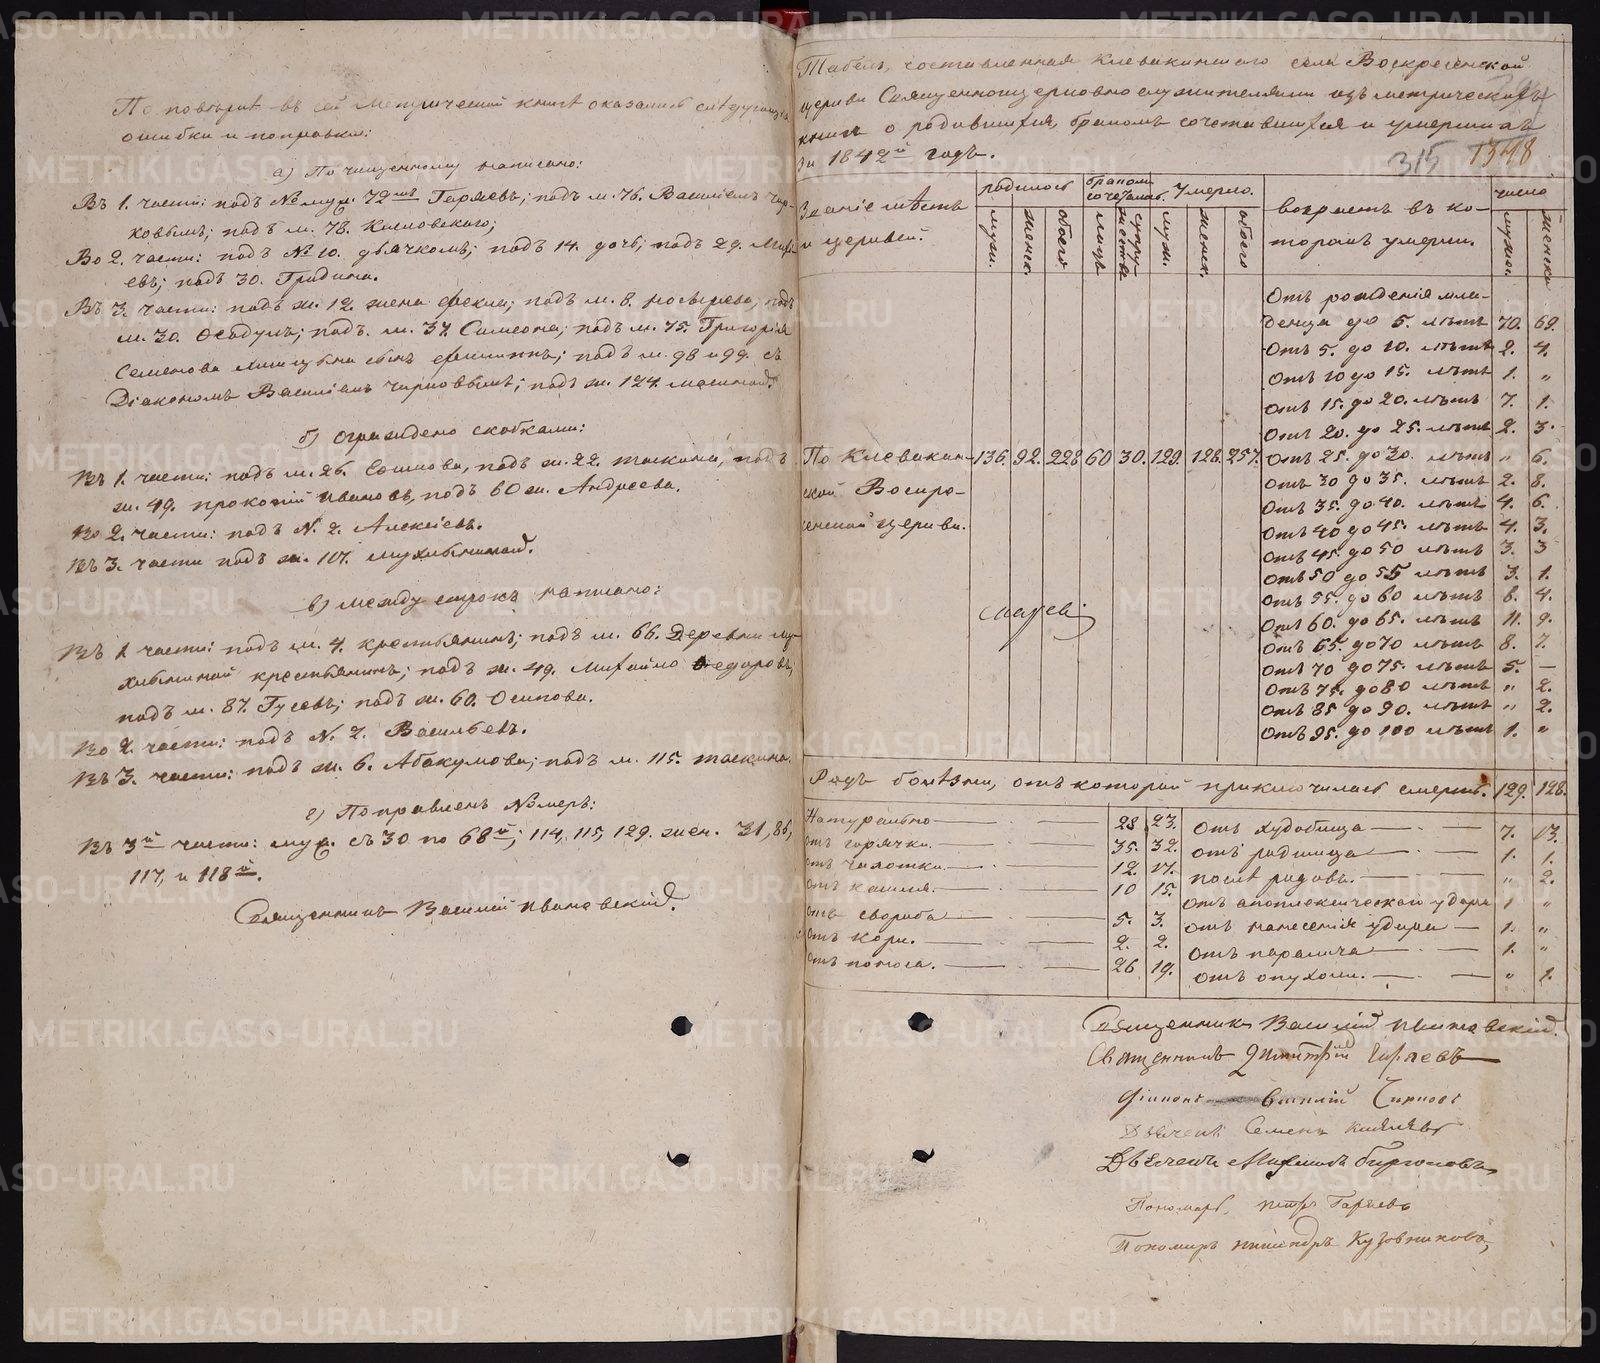 По повѣркѣ въ сей Метрической книгѣ оказались слѣдующія
ошибки и поправки:
а) По чищенному написано:
Въ 1. части: подъ № муж. 72мъ Гаряевъ; подъ м. 76. Василіемъ Чир-
ковымъ; подъ м. 78.
Во 2. части: подъ № 10. дьячкомъ; подъ 14. дочь; подъ 29.
евъ; подъ 30.
Въ 3. части: подъ ж. 12. жена Фекла; подъ м. 8. подъ
м. 30. подъ м. 37. Симеона; подъ м. 75. Григорія
Семенова сынъ Филиппъ; подъ м. 98 и 99. съ
Діакономъ Василіемъ Чирковымъ; подъ ж. 124.
б) ограждено скобками:
Въ 1. части: подъ м. 26. подъ ж. 22. подъ
ж. 49. прокопій Ивановъ, подъ 60 ж. Андреева.
Во 2. части: подъ N. 2. Алексѣевъ.
Въ 3. части подъ ж. 107.
в) между строкъ написано:
Въ 1. части: подъ м. 4. крестьянинъ; подъ м. 66. Деревни
крестьянинъ; подъ ж. 49. Михайло Федоровъ,
подъ м. 87. Гусевъ; подъ ж. 60. Осипова.
Во 2. части: подъ N. 2. Васильевъ.
Въ 3. части: подъ ж. 6. Абакумова; подъ м. 115.
г) Поправленъ Номеръ:
Въ 3й части: муж. съ 30 по 68й; 114, 115, 129. жен. 31, 86,
117, и 118й.
Священникъ Василій Ивановскій.
Табель, составленная Клевакинскаго села Воскресенской
церкви Священноцерковнослужителями изъ метрическихъ
книгъ о родившихся, бракомъ сочетавшихся и умершихъ
за 1842й годъ.
315 1348
Званіе мѣстъ и церквей.
родилось
муж. женск. обоего
бракомъ сочеталось
лицъ супружествъ
Умерло.
муж. женск. обоего
возрастъ въ ко-
торомъ умерли.
число
мужск. женска
По Клевакин-
ской Воскре-
сенской церкви.
136. 92. 228 60 30. 129. 128. 257.
Отъ рожденія мла-
денца до 5. лѣтъ 70. 69.
Отъ 5. до 10. лѣтъ 2. 4.
Отъ 10 до 15. лѣтъ 1. „
Отъ 15. до 20. лѣтъ 7. 1.
Отъ 20. до 25. лѣтъ 2. 3.
Отъ 25. до 30. лѣтъ „ 6.
Отъ 30 до 35. лѣтъ 2. 8.
Отъ 35. до 40. лѣтъ 4. 6.
Отъ 40 до 45. лѣтъ 4. 3.
Отъ 45. до 50 лѣтъ 3. 3
Отъ 50 до 55 лѣтъ 3. 1.
Отъ 55. до 60 лѣтъ 6. 4.
Отъ 60. до 65. лѣтъ 11. 9.
Отъ 65. до 70 лѣтъ 8. 7.
Отъ 70 до 75. лѣтъ 5. —
Отъ 75. до 80 лѣтъ „ 2.
Отъ 85 до 90. лѣтъ „ 2.
Отъ 95. до 100 лѣтъ 1. „
Родъ болѣзни, отъ которой приключилась смерть. 129. 128.
Натурально — 28 23.
отъ горячки. — 35. 32.
отъ чахотки. — 12. 17.
отъ кашля. — 10 15.
отъ свороба — 5. 3.
отъ кори. — 2. 2.
отъ поноса. — 26. 19.
Отъ худобища — 7. 13.
Отъ родимца — 1. 1.
послѣ родовъ. — „ 2.
отъ апоплексическаго удара 1 „
отъ нанесенія удара — 1. „
отъ паралича — 1. „
отъ опухоли. — „ 1.
Священникъ Василій Ивановскій.
Священникъ Димитрій Гаряевъ
Діаконъ Василій Чирковъ
Дьячекъ Семенъ
Дьячекъ Михаилъ Бирюковъ
Пономарь, Петръ Гаряевъ
Пономарь Никандръ Кузовниковъ,
METRIKI.GASO-URAL.RU